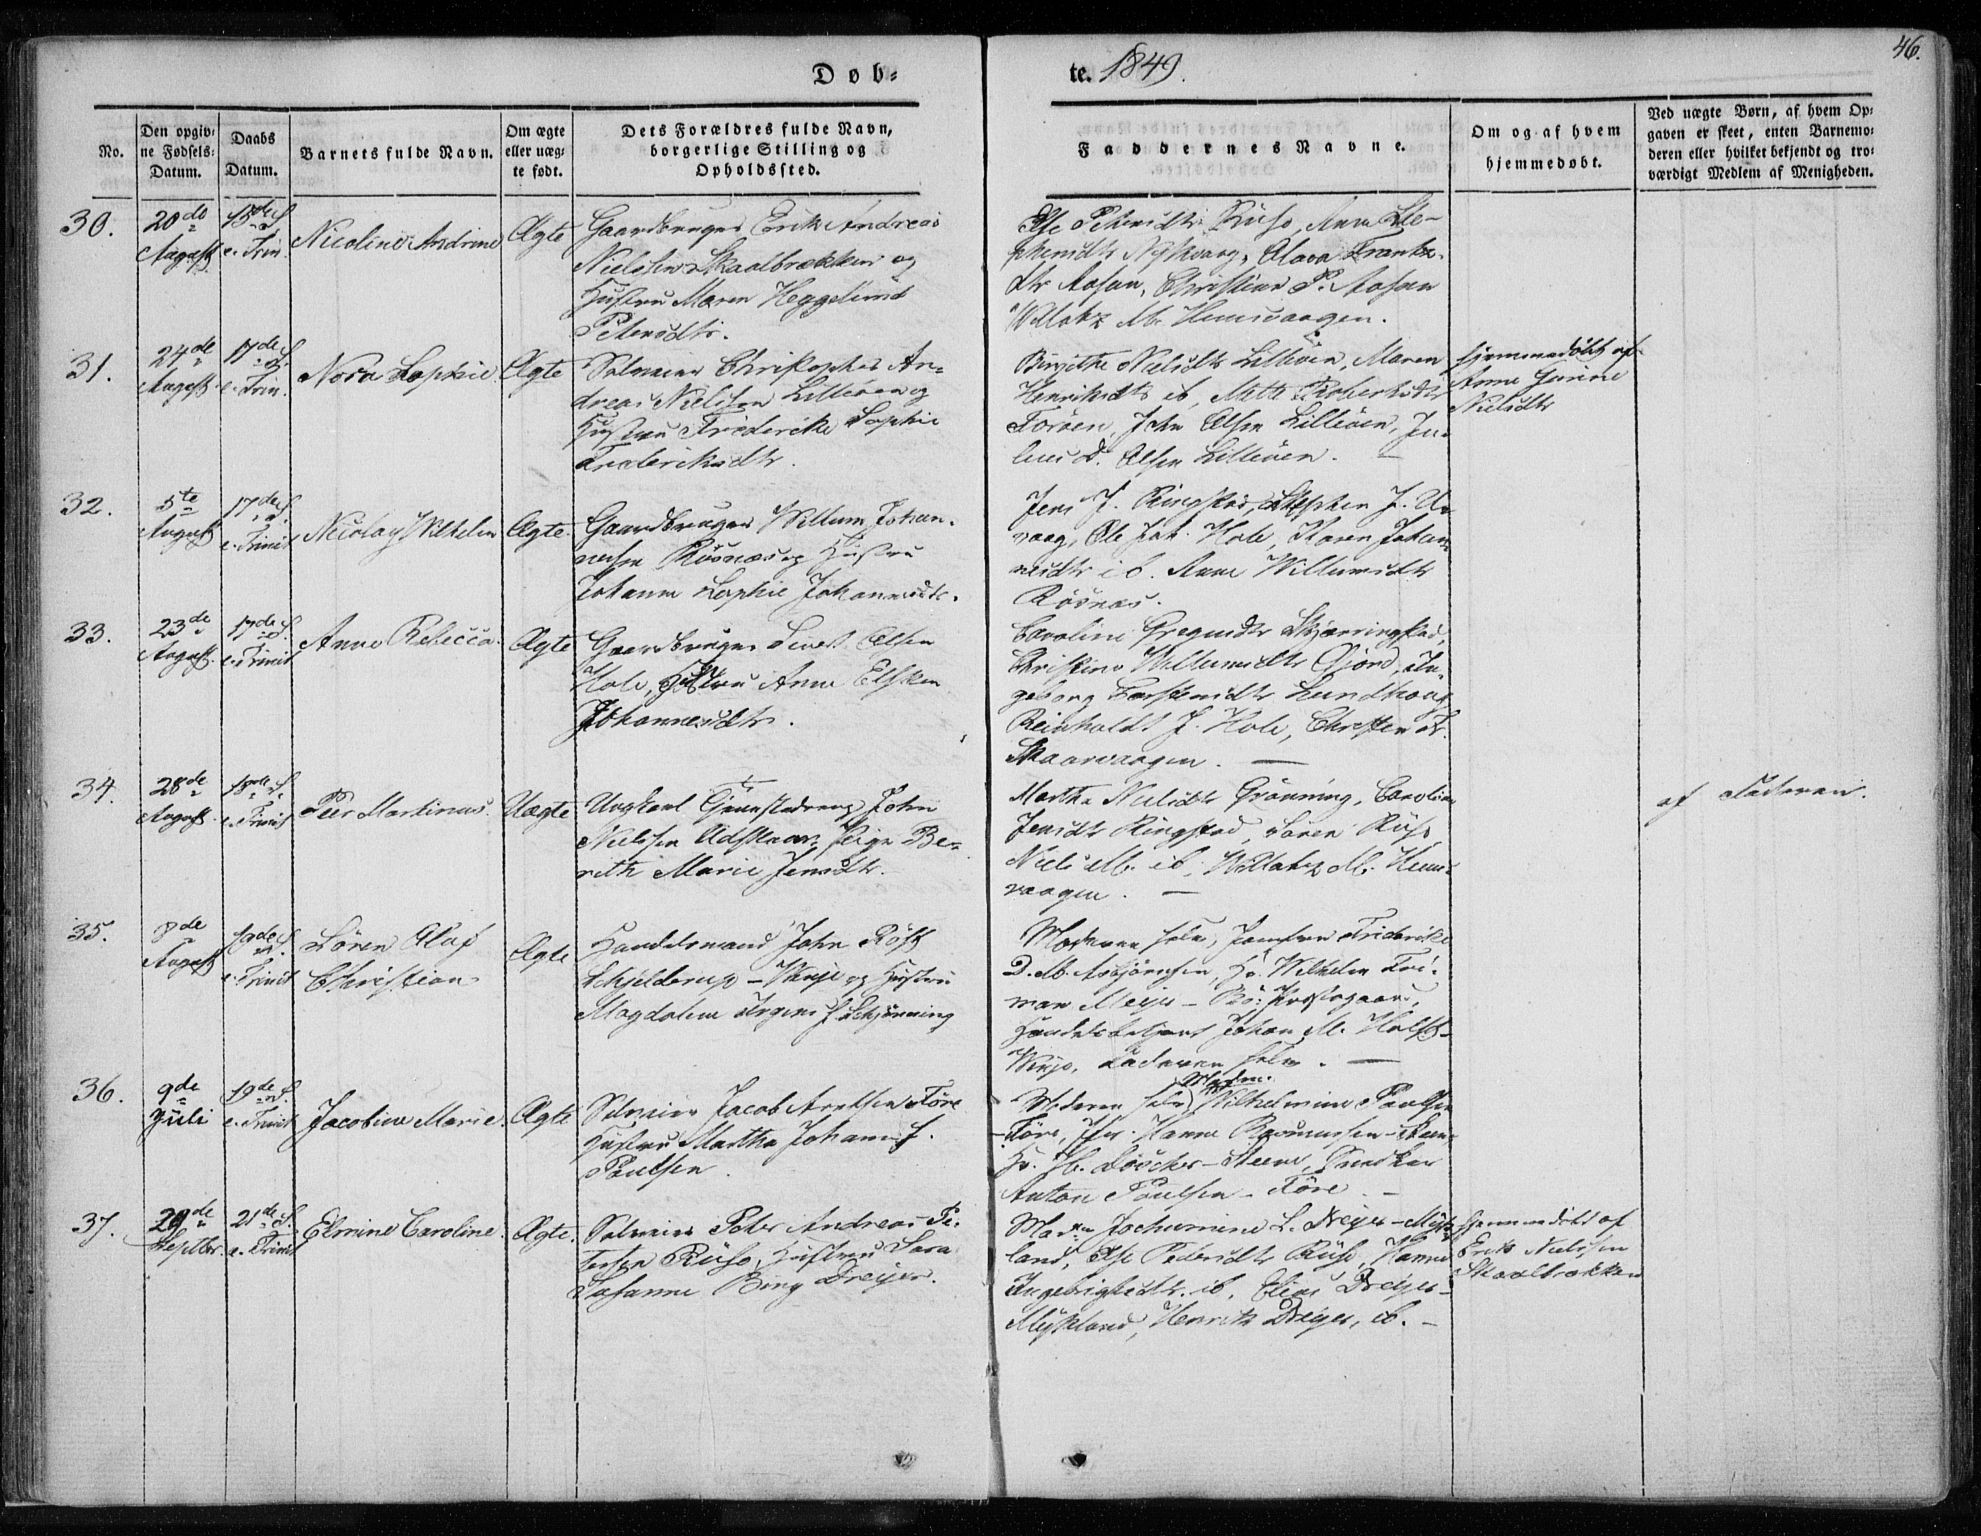 Døb-
te. 1849.
46.
No.
Den opgiv-
ne Fødsels-
Datum.
Daabs
Datum.
Barnets fulde Navn.
Om ægte
eller uæg-
te født.
Dets Forældres fulde Navn,
borgerlige Stilling og
Opholdssted.
Faddernes Navne.
Om og af hvem
hjemmedøbt.
Ved uægte Børn, af hvem Op-
gaven er skeet, enten Barnemo-
deren eller hvilket bekjendt og tro-
værdigt Medlem af Menigheden.
30.
20de
August
e. Trin.
Nicoline Andrine
Ægte
Gaardbruger Erik Andreas
Nielsen Skaalbrækken og
Hustru Maren Heggelund
Petersdtr.
Else Pedersdtr Russo, Anna Ste-
phensdtr Nyhvaag, Olava Frantz-
dtr Aasan, Christine P. Aasan
31.
24de
August
17de S.
e. Trin.
Nora Sophie
Ægte
Selveier Christopher An-
dreas Nielsen Lilleøen og
Hustru Frederikke Sophie
Frederiksdtr.
Birgithe Nielsdtr Lilleøen, Maren
Henriksdtr ib, Mette Robertsdtr
John Olsen Lilleøen, Ju-
lius D. Olsen Lilleøen. –
hjemmedøbt af
Anne
Nielsdtr
32.
5te
August
17de S.
e. Trinit
Nicolay Wilhelm
Ægte
Gaardbruger Willum Johan-
nesen Røsnæs og Hustru
Johanna Sophie Johannesdtr.
Jens J. Ringstad, Stephen J. Aa-
vaag, Ole Joh. Hole, Karen Johan-
nesdtr ib. Anne Willumsdtr
Røsnæs.
33.
23de
August
17de S.
e. Trinit
Anne Rebecca
Ægte
Gaardbruger Sivert Olsen
Hole, Hustru Anne Elsken
Johannesdtr.
Caroline Gregusdtr Skjærringstad,
Christine Willumsdtr Gjord, In-
geborg Torstensdtr Lundhaug
Reinholdt J. Hole, Christen
Skaarvaagen. —
34.
28de
August
18de S.
e. Trinit
Peer Martinus.
Uægte
Ungkarl John
Nielsen Pige Be-
reth Marie Jensdtr.
Martha Nielsdtr Grønning, Caroline
Jensdtr Ringstad, Søren Russo
Niels M. ib,
vaagen. —
af Faderen.
35.
8de
August
19de S.
e. Trinit
Søren Olaf
Christian
Ægte
Handelsmand John Røst
Schjelderup – Winje og Hustru
Magdalene f. Schjønning
Moderen selv, Jomfru Friderikke
D. M. Asbjørnsen, Hr. Wilhelm Fri-
man Meyer – Bø: Præstegaard,
Handelsbetjent Johan M. Holst
Winje, Faderen selv. —
36.
9de
Juli
19de S.
e. Trinit
Jacobine Marie
Ægte
Selveier Jacob Arntsen Føre
Hustru Martha Johanna f.
Paulsen.
Moderen selv, Madm. Wilhelmine Paulsen
Føre, Jfr. Hanna Rasmussen – Steen
Anton Paulsen – Føre. –
37.
29de
Septbr.
21de S.
e. Trinit
Elmine Caroline.
Ægte.
Selveier Peter Andreas Pe-
tersen Russo, Hustru Sara
Susanne Bing Dreyer.
Mad. Jochumine L. Dreyer – Myk-
land, Else Pedersdtr Russo, Hanna
Ingebrigtsdtr. ib, Elias Dreyer
Mykland, Henrik Dreyer, ib. –
hjemmedøbt af
Erik Nielsen
Skaalbrækken